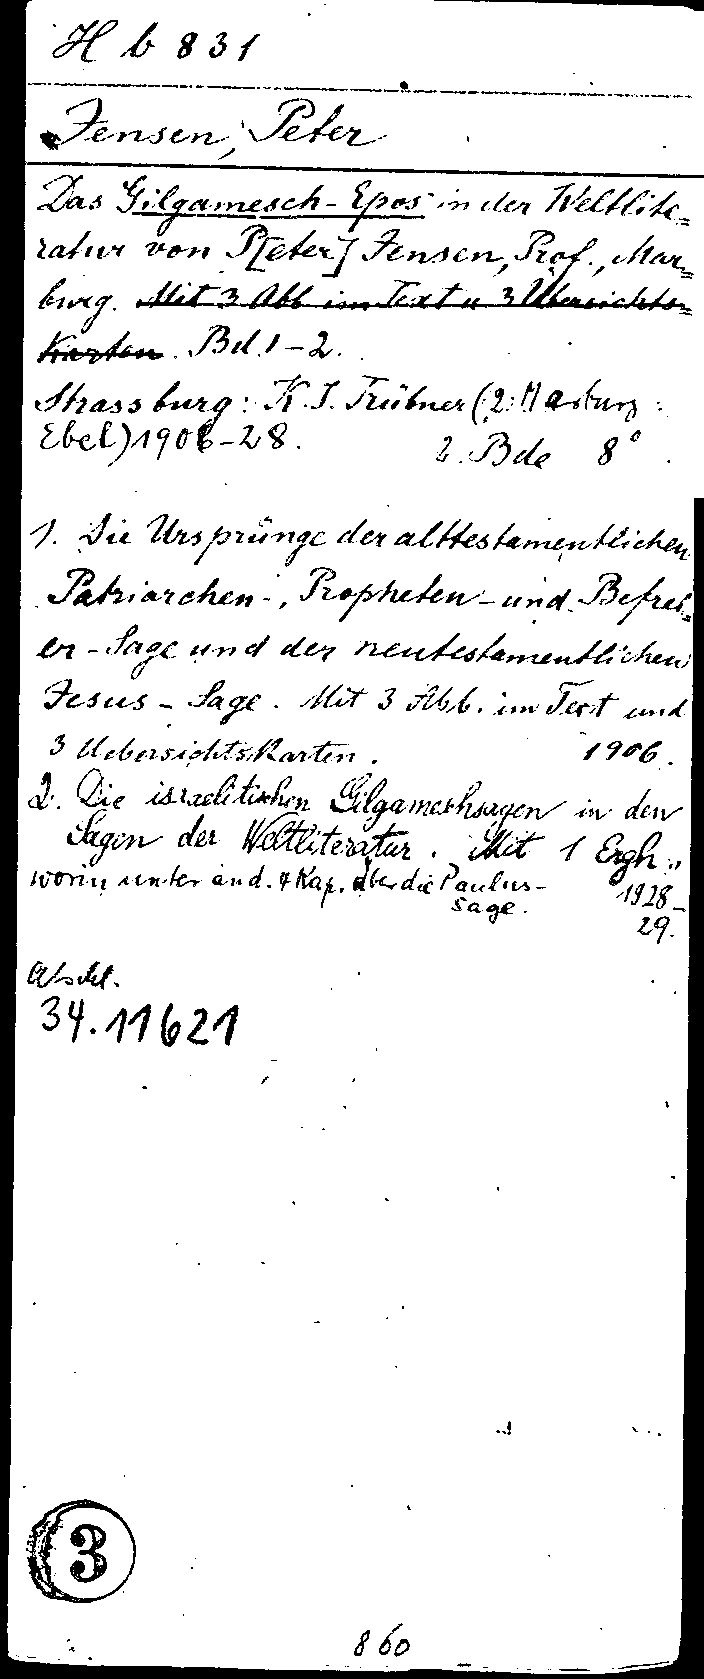 H b 831
Jensen, Peter
Das Gilgamesch-Epos in der Weltlite=
ratur von P[eter] Jensen, Prof., Mar=
burg. Mit 3 Abb im Text u 3 Übersichts=
Karten. Bd. 1-2.
Strassburg: K. J. Trübner (2: Marburg:
Ebel) 1906-28. 2 Bde 8°.
1. Die Ursprünge der alttestamentlichen
Patriarchen-, Propheten- und Befrei=
er-Sage und der neutestamentlichen
Jesus-Sage. Mit 3 Abb. im Text und
3 Uebersichtskarten. 1906.
2. Die israelitischen Gilgameshsagen in den
Sagen der Weltliteratur. Mit 1 Ergh.,
worin unter and. 4 Kap. über die Paulus-
sage. 1928-
29.
34.11621
3
860